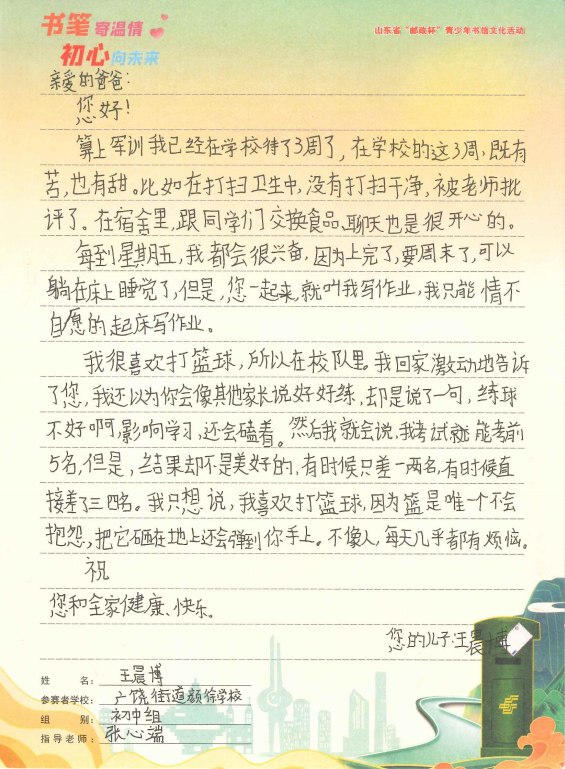 书笔寄温情
初心向未来
山东省“邮政杯”青少年书信文化活动
亲爱的爸爸:
您好!
算上军训我已经在学校待了3周了,在学校的这3周,既有
苦,也有甜。比如在打扫卫生中,没有打扫干净,被老师批
评了。在宿舍里,跟同学们交换食品、聊天也是很开心的。
每到星期五,我都会很兴奋,因为上完了,要周末了,可以
躺在床上睡觉了,但是,您一起来,就叫我写作业,我只能情不
自愿的起床写作业。
我很喜欢打篮球,所以在校队里。我回家激动地告诉
了您,我还以为你会像其他家长说好好练,却是说了一句,练球
不好啊,影响学习,还会磕着。然后我就会说,我考试就能考前
5名,但是,结果却不是美好的,有时候只差一两名,有时候直
接差了三四名。我只想说,我喜欢打篮球,因为篮是唯一个不会
抱怨,把它砸在地上还会弹到你手上。不像人,每天几乎都有烦恼。
祝
您和全家健康、快乐。
您的儿子:王晨博
姓名:王晨博
参赛者学校:广饶街道颜徐学校
组别:初中组
指导老师:张心端